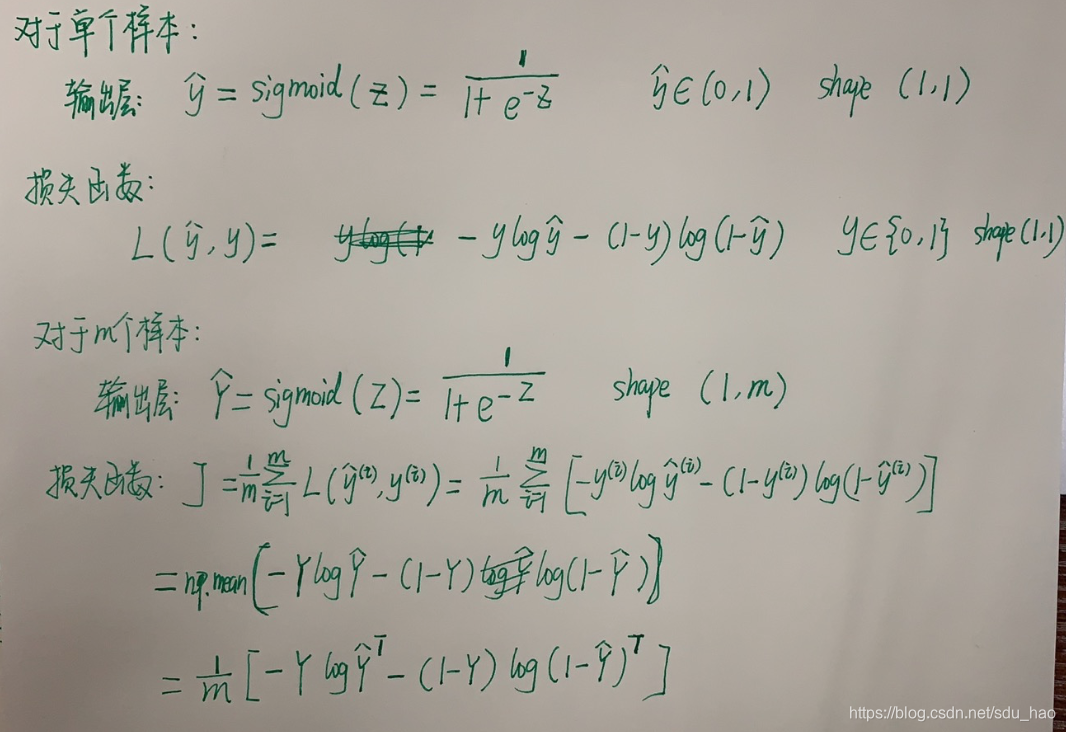 对于单个样本：
输出层： ŷ = sigmoid(z) = 1/(1+e^{-z}) ŷ∈(0,1) shape (1,1)
损失函数：
L(ŷ, y) = -ylogŷ - (1-y)log(1-ŷ) y∈{0,1} shape(1,1)
对于m个样本：
输出层： Ŷ = sigmoid(Z) = 1/(1+e^{-Z}) shape (1,m)
损失函数： J = 1/m ∑_{i=1}^{m} L(ŷ^{(i)}, y^{(i)}) = 1/m ∑_{i=1}^{m} [-y^{(i)}logŷ^{(i)} - (1-y^{(i)})log(1-ŷ^{(i)})]
= np.mean[-YlogŶ - (1-Y)log(1-Ŷ)]
= 1/m [-YlogŶ^T - (1-Y)log(1-Ŷ)^T]
https://blog.csdn.net/sdu_hao